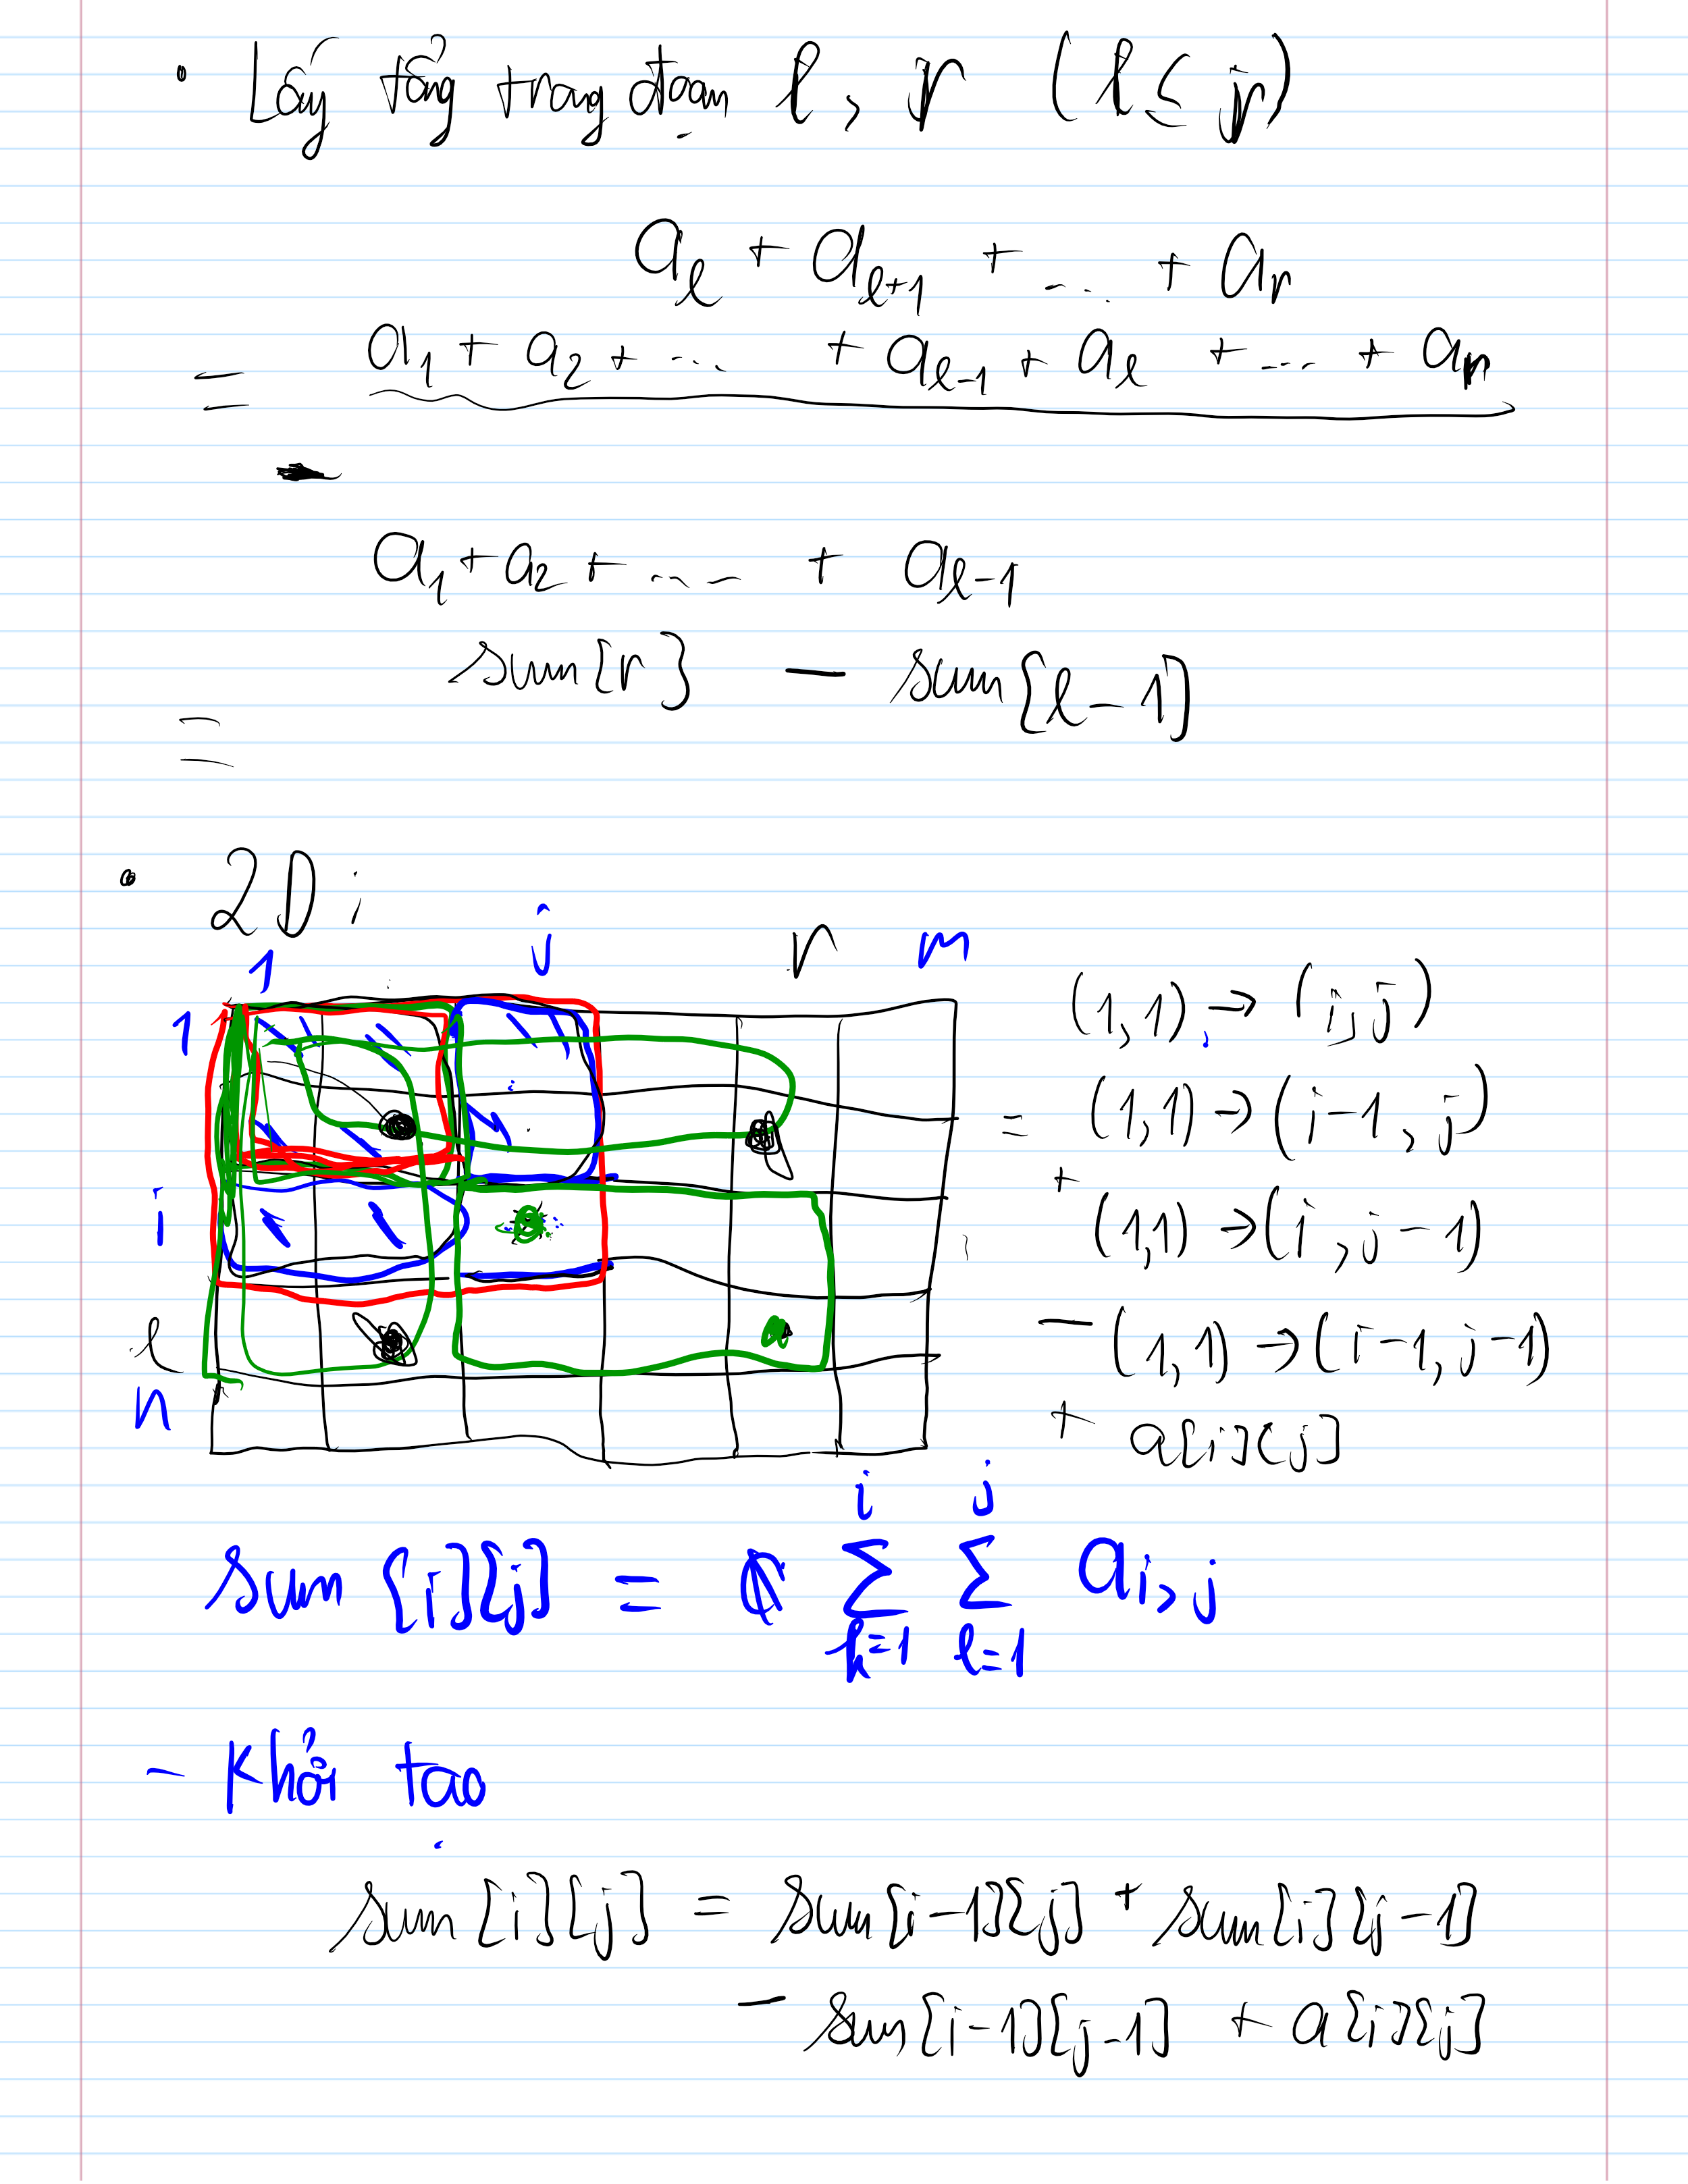 • Lấy tổng trong đoạn l, r (l ≤ r)
a_l + a_{l+1} + ... + a_r
= a_1 + a_2 + ... + a_{l-1} + a_l + ... + a_r
-
a_1 + a_2 + ..... + a_{l-1}
= sum[r] - sum[l-1]
• 2D:
1 j r m
1
i
l
n
(1,1) → (i,j)
= (1,1) → (i-1,j)
+ (1,1) → (i,j-1)
- (1,1) → (i-1,j-1)
+ a[i][j]
sum[i][j] = ∑_{k=1}^{i} ∑_{l=1}^{j} a_{i,j}
- Khởi tạo
sum[i][j] = sum[i-1][j] + sum[i][j-1]
- sum[i-1][j-1] + a[i][j]